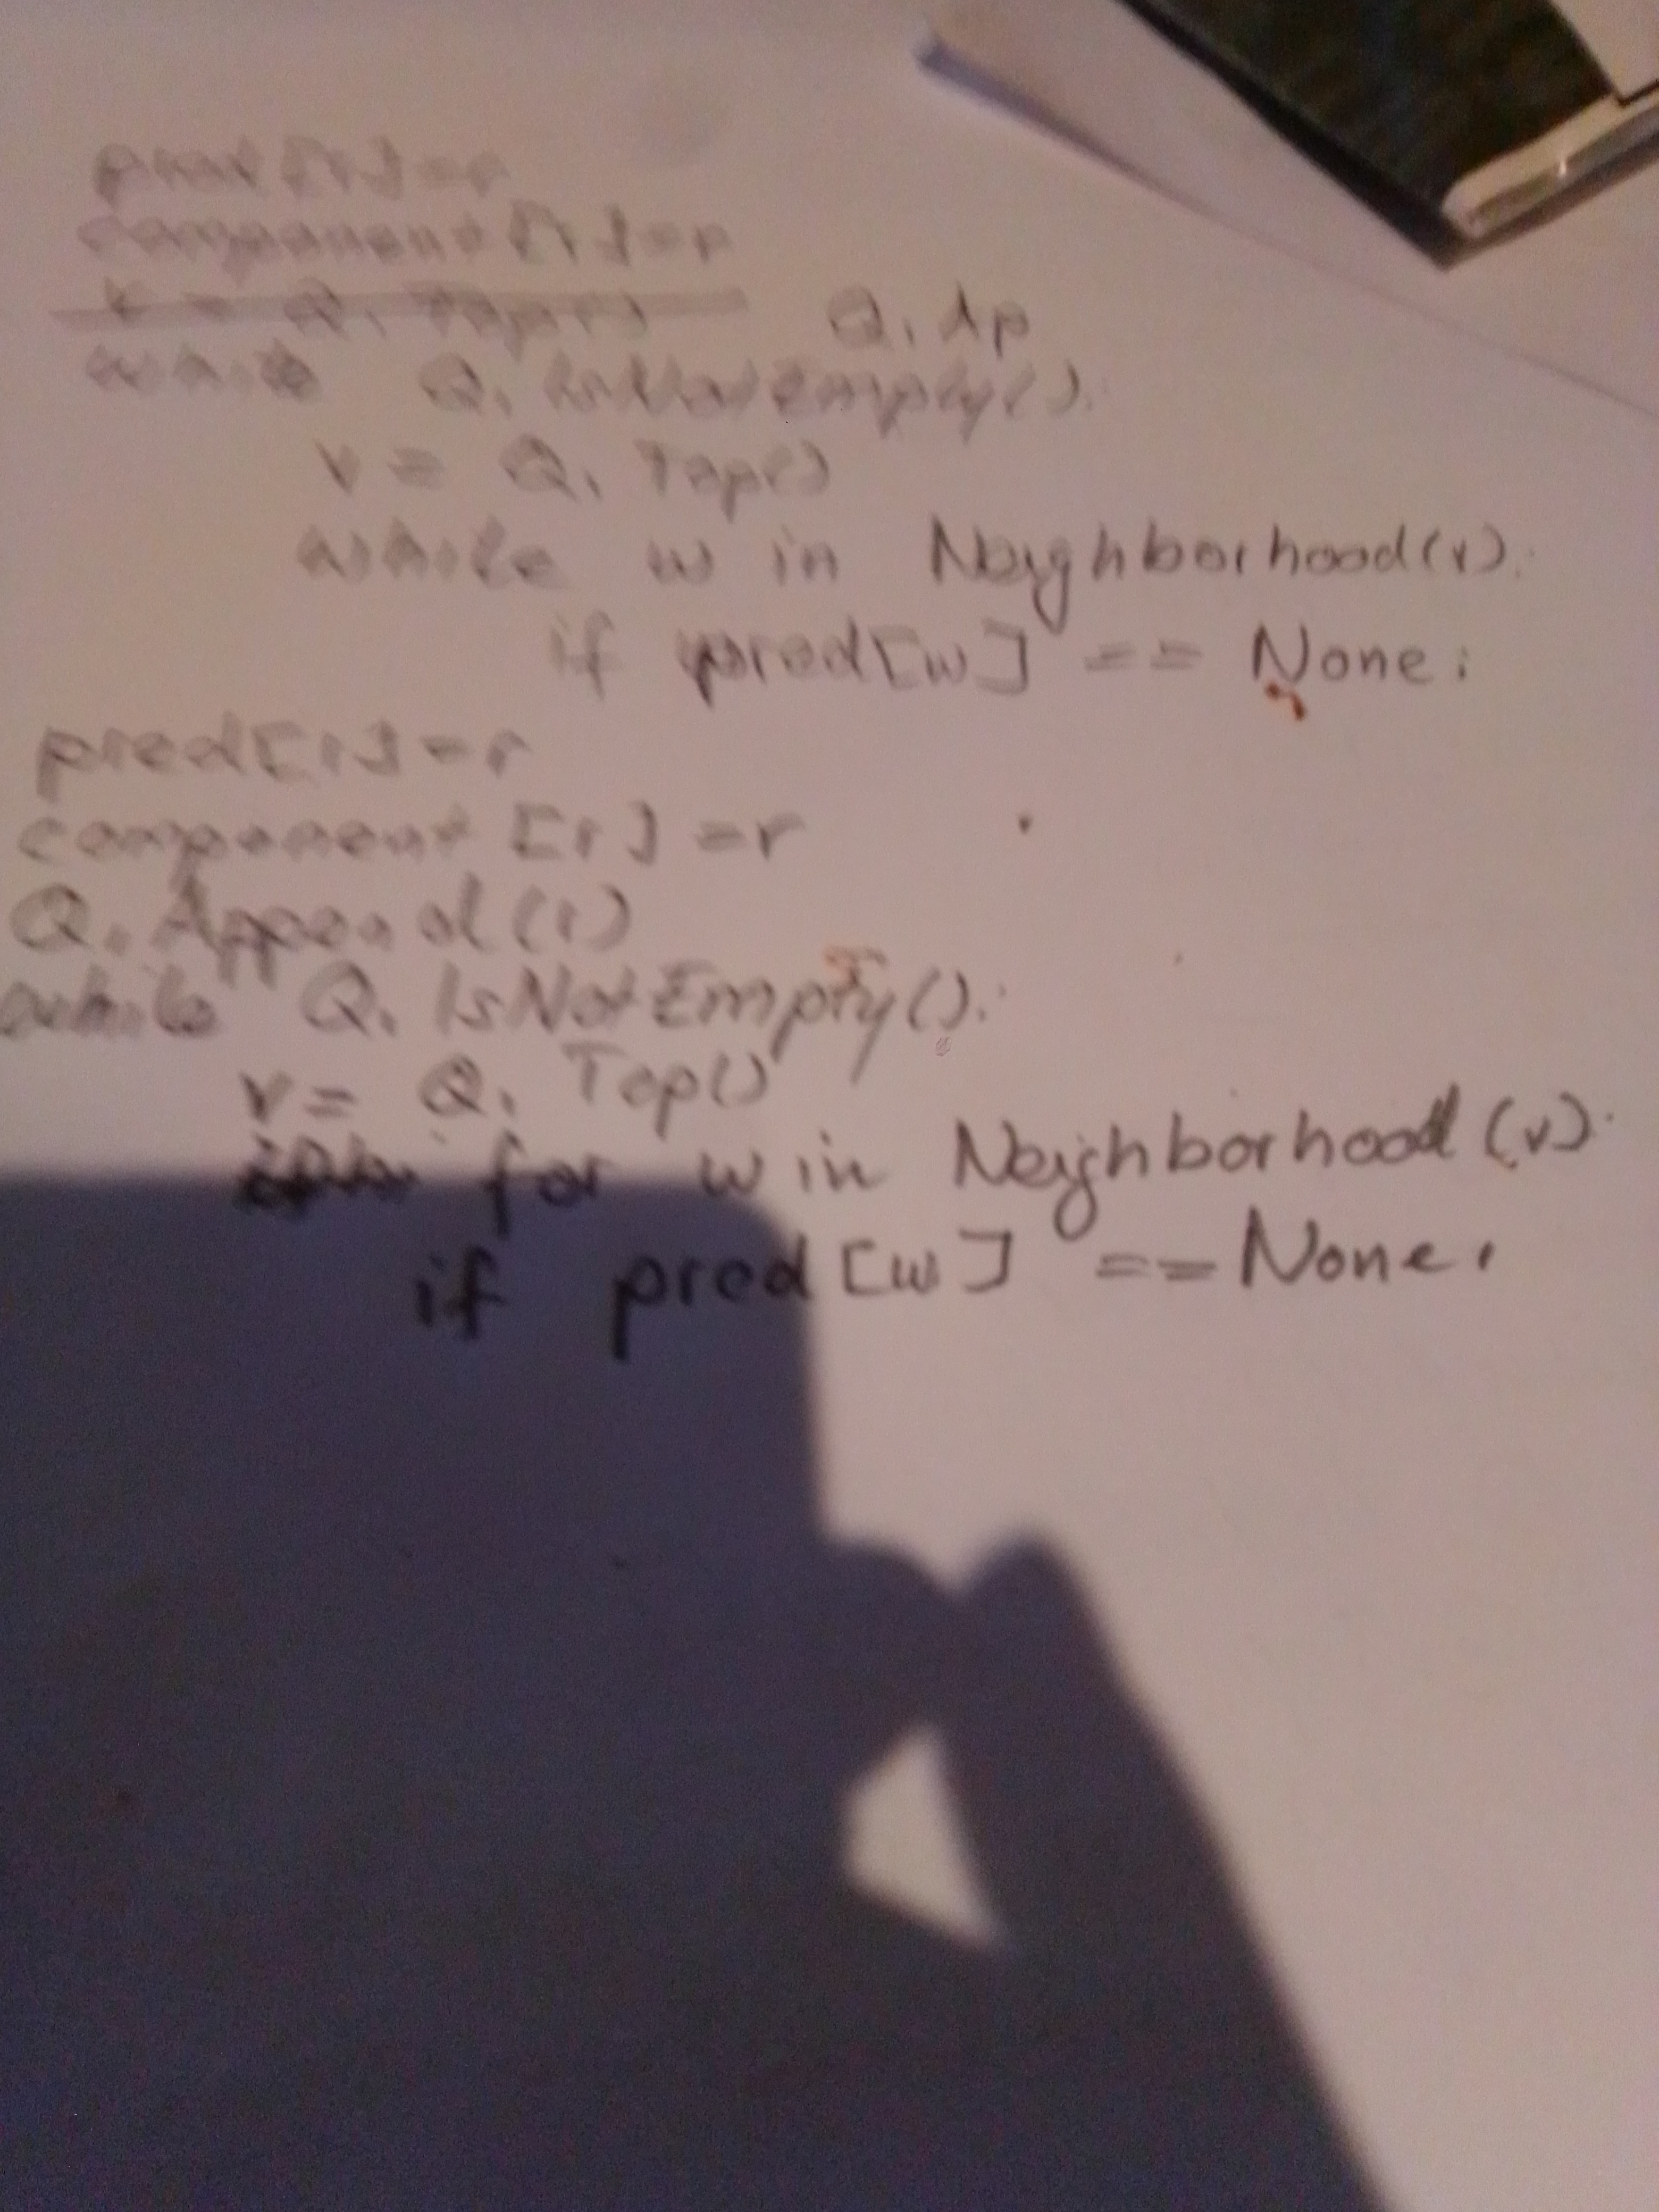 pred[r]=r
component[r]=r
v = Q. Top() Q. Ap
while Q. IsNotEmpty():
v = Q. Top()
while w in Neighborhood(v):
if pred[w] == None:
pred[r]=r
component [r] =r
Q. Append(r)
while Q. IsNotEmpty():
v = Q. Top()
for w in Neighborhood (v):
if pred [w] == None: